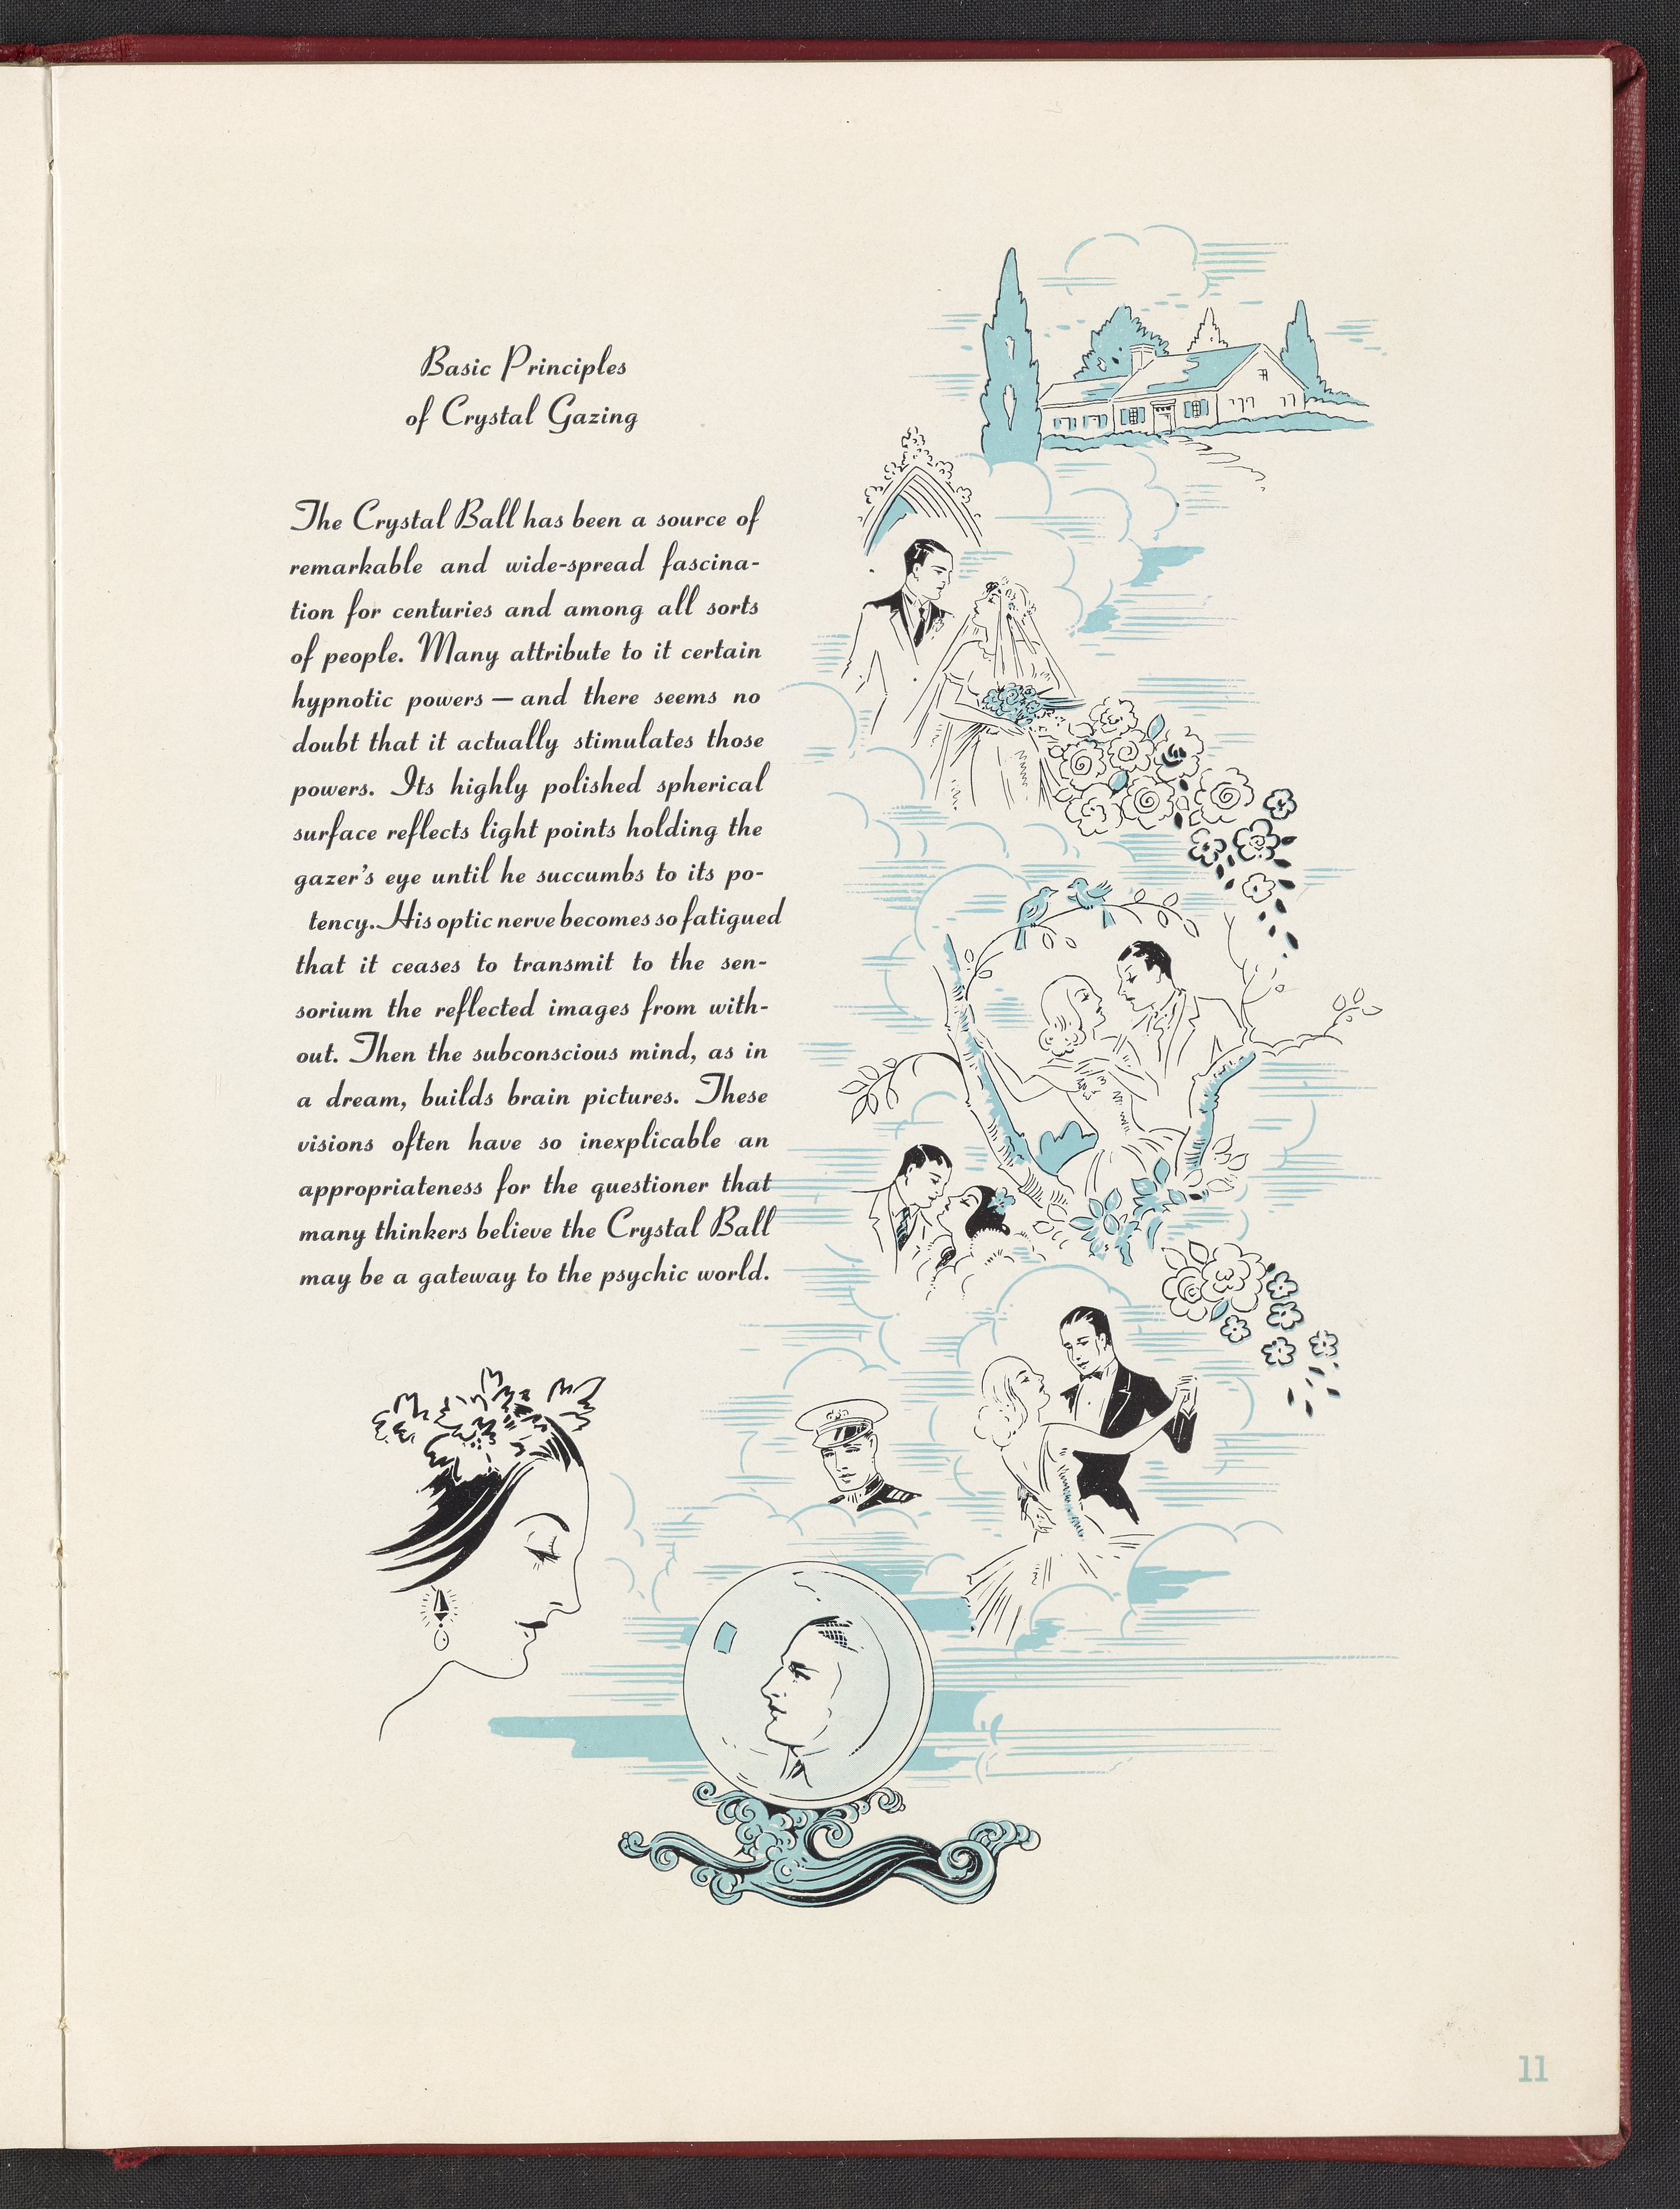 Basic Principles
of Crystal Gazing
The Crystal Ball has been a source of
remarkable and wide-spread fascina-
tion for centuries and among all sorts
of people. Many attribute to it certain
hypnotic powers — and there seems no
doubt that it actually stimulates those
powers. Its highly polished spherical
surface reflects light points holding the
gazer's eye until he succumbs to its po-
tency. His optic nerve becomes so fatigued
that it ceases to transmit to the sen-
sorium the reflected images from with-
out. Then the subconscious mind, as in
a dream, builds brain pictures. These
visions often have so inexplicable an
appropriateness for the questioner that
many thinkers believe the Crystal Ball
may be a gateway to the psychic world.
11